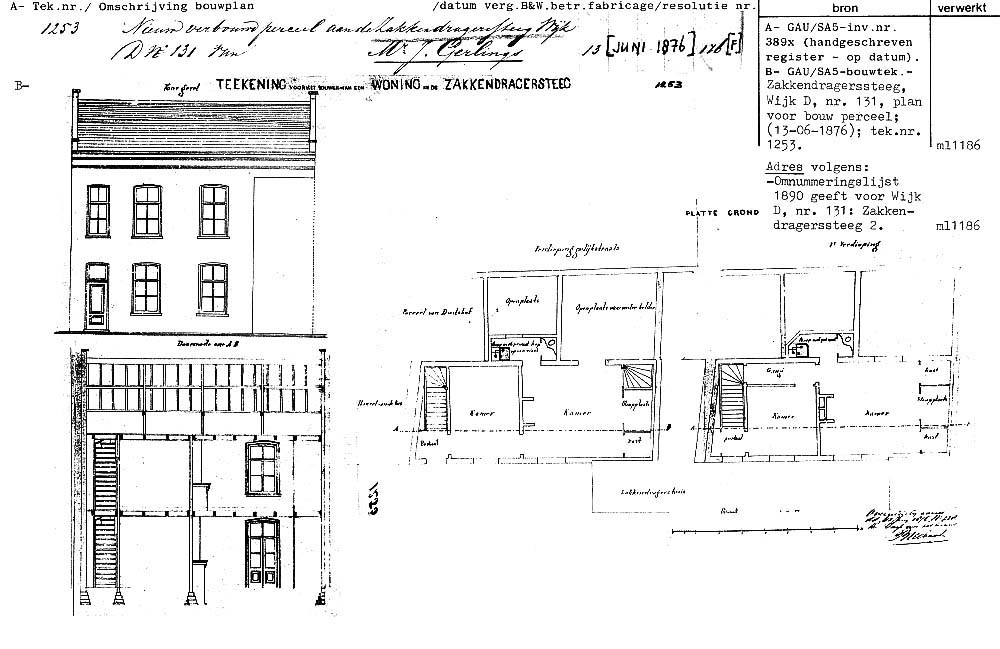 A- Tek.nr./ Omschrijving bouwplan /datum verg.B&W.betr.fabricage/resolutie nr.
bron
verwerkt
1253 Nieuw verbouwd perceel aan de Zakkendragerssteeg Wijk
D No 131 van Mr J. Gerlings 13 [JUNI 1876] 128 [F]
A- GAU/SA5-inv.nr.
389x (handgeschreven
register - op datum).
B- GAU/SA5-bouwtek.-
Zakkendragerssteeg,
Wijk D, nr. 131, plan
voor bouw perceel;
(13-06-1876); tek.nr.
1253.
ml1186
Adres volgens:
-Omnummeringslijst
1890 geeft voor Wijk
D, nr. 131: Zakken-
dragerssteeg 2.
ml1186
B-
Voorgevel
TEEKENING VOOR HET BOUWEN VAN EEN WONING IN DE ZAKKENDRAGERSTEEG
1253
Doorsnede over A B
PLATTE GROND
Verdieping gelijkstraats
1e Verdieping
Perceel van
Openplaats
Openplaats
Kamer
Kamer
Slaapplaats
Kast
Portaal
A
B
Gang
Kamer
Kamer
Kast
Slaapplaats
Kast
portaal
A
1253
Straat